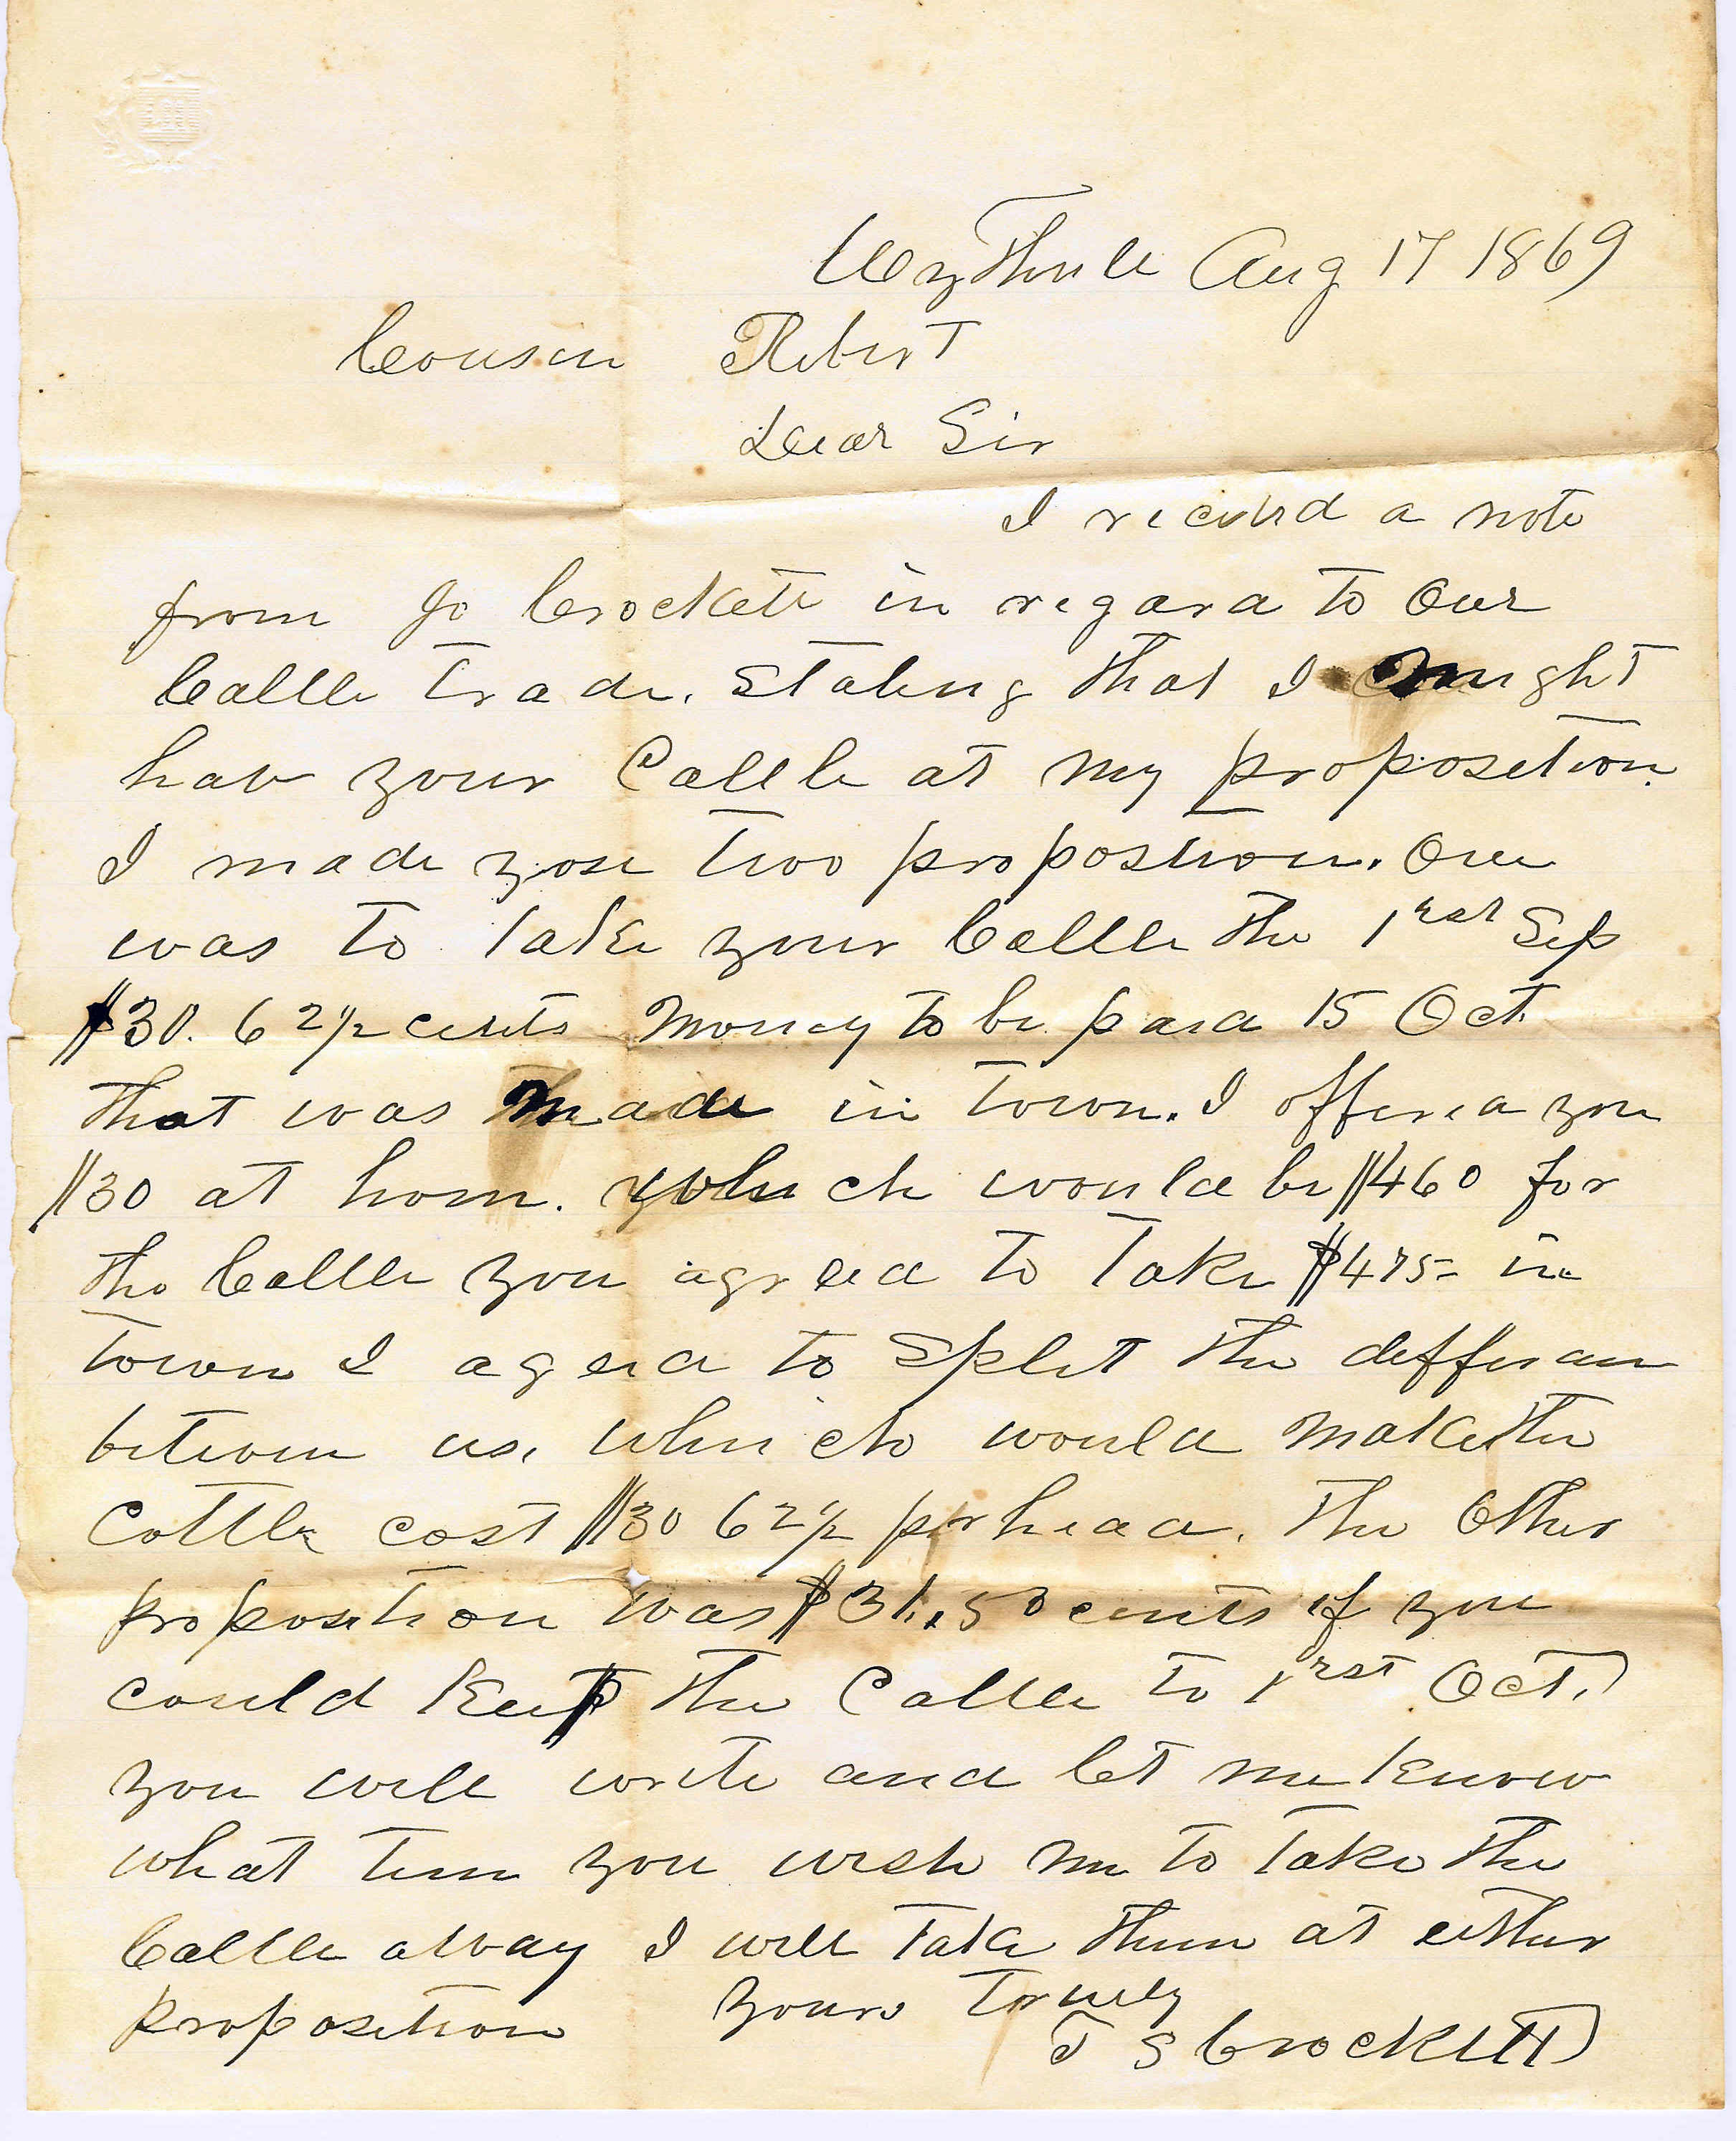 Wytheville Aug 17 1869
Cousin Robert
Dear Sir
I recivhd a note
from Jo Crockett in regard to Our
Cattle Trade. Stateing that I might
hav your Cattle at my proposition.
I made you two propostion. One
was to take your Cattle the 1rst Sep
$30. 62½ cents Money to be paid 15 Oct.
That was made in Town. I offered you
$30 at hom. Which would be $460 for
the Cattle you agreed to Take $475= in
Town I agred to Split the differan
between us, which would make the
Cattle cost $30 62½ pr head. The Other
proposition was $31.50 cents if you
could Keep the Cattle to 1rst Oct.
you will write and let me Know
what time you wish me to Take the
Cattle away I will Take them at either
proposition Yours Truely
J S Crockett